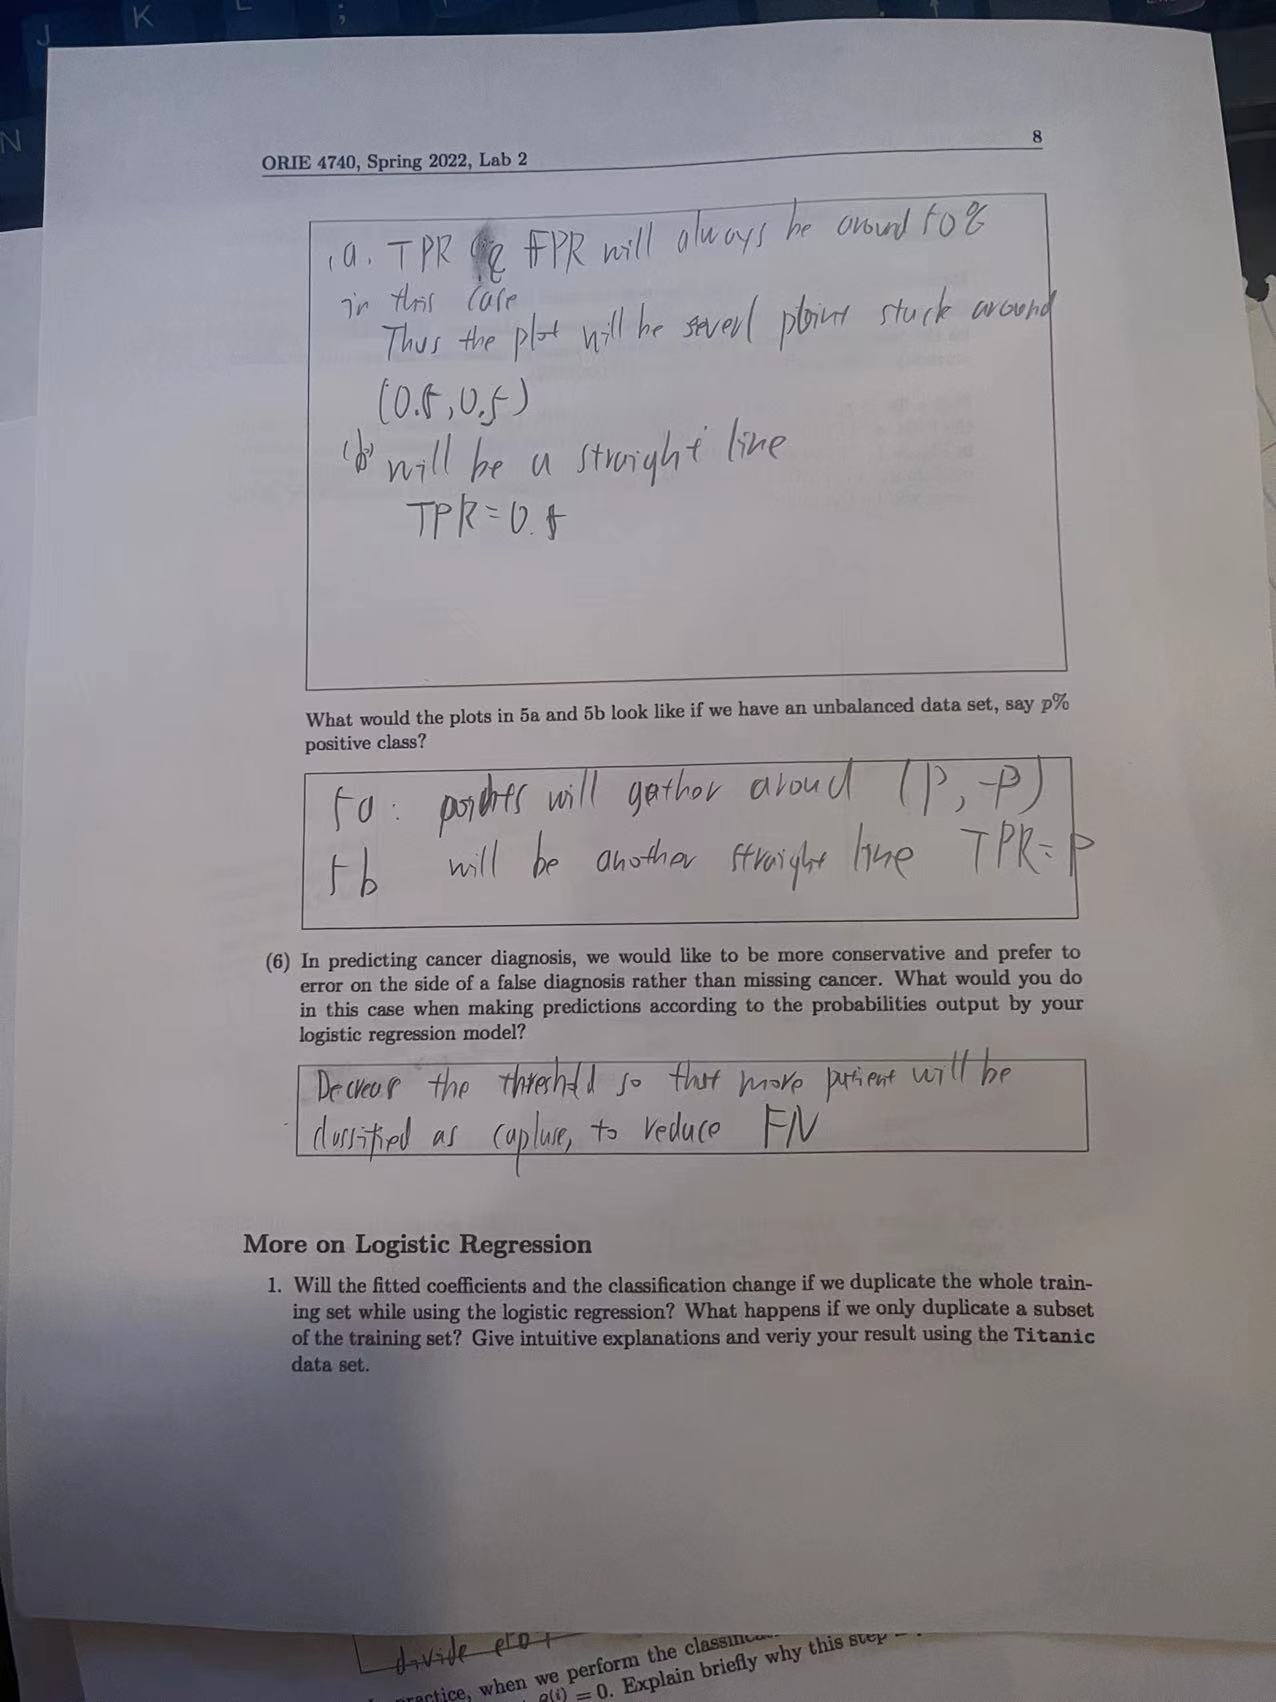 J K L ;
N
8
ORIE 4740, Spring 2022, Lab 2
a. TPR & FPR will always be around 50%
in this case
Thus the plot will be severl point stuck around
(0.5, 0.5)
(b) will be a straight line
TPR = 0.5
What would the plots in 5a and 5b look like if we have an unbalanced data set, say p%
positive class?
5a: points will gather aroud (p, p)
5b will be another straight line TPR = p
(6) In predicting cancer diagnosis, we would like to be more conservative and prefer to
error on the side of a false diagnosis rather than missing cancer. What would you do
in this case when making predictions according to the probabilities output by your
logistic regression model?
the threshld so that more patient will be
classified as to reduce FN
More on Logistic Regression
1. Will the fitted coefficients and the classification change if we duplicate the whole train-
ing set while using the logistic regression? What happens if we only duplicate a subset
of the training set? Give intuitive explanations and veriy your result using the Titanic
data set.
divide
, when we perform the
= 0. Explain briefly why this step